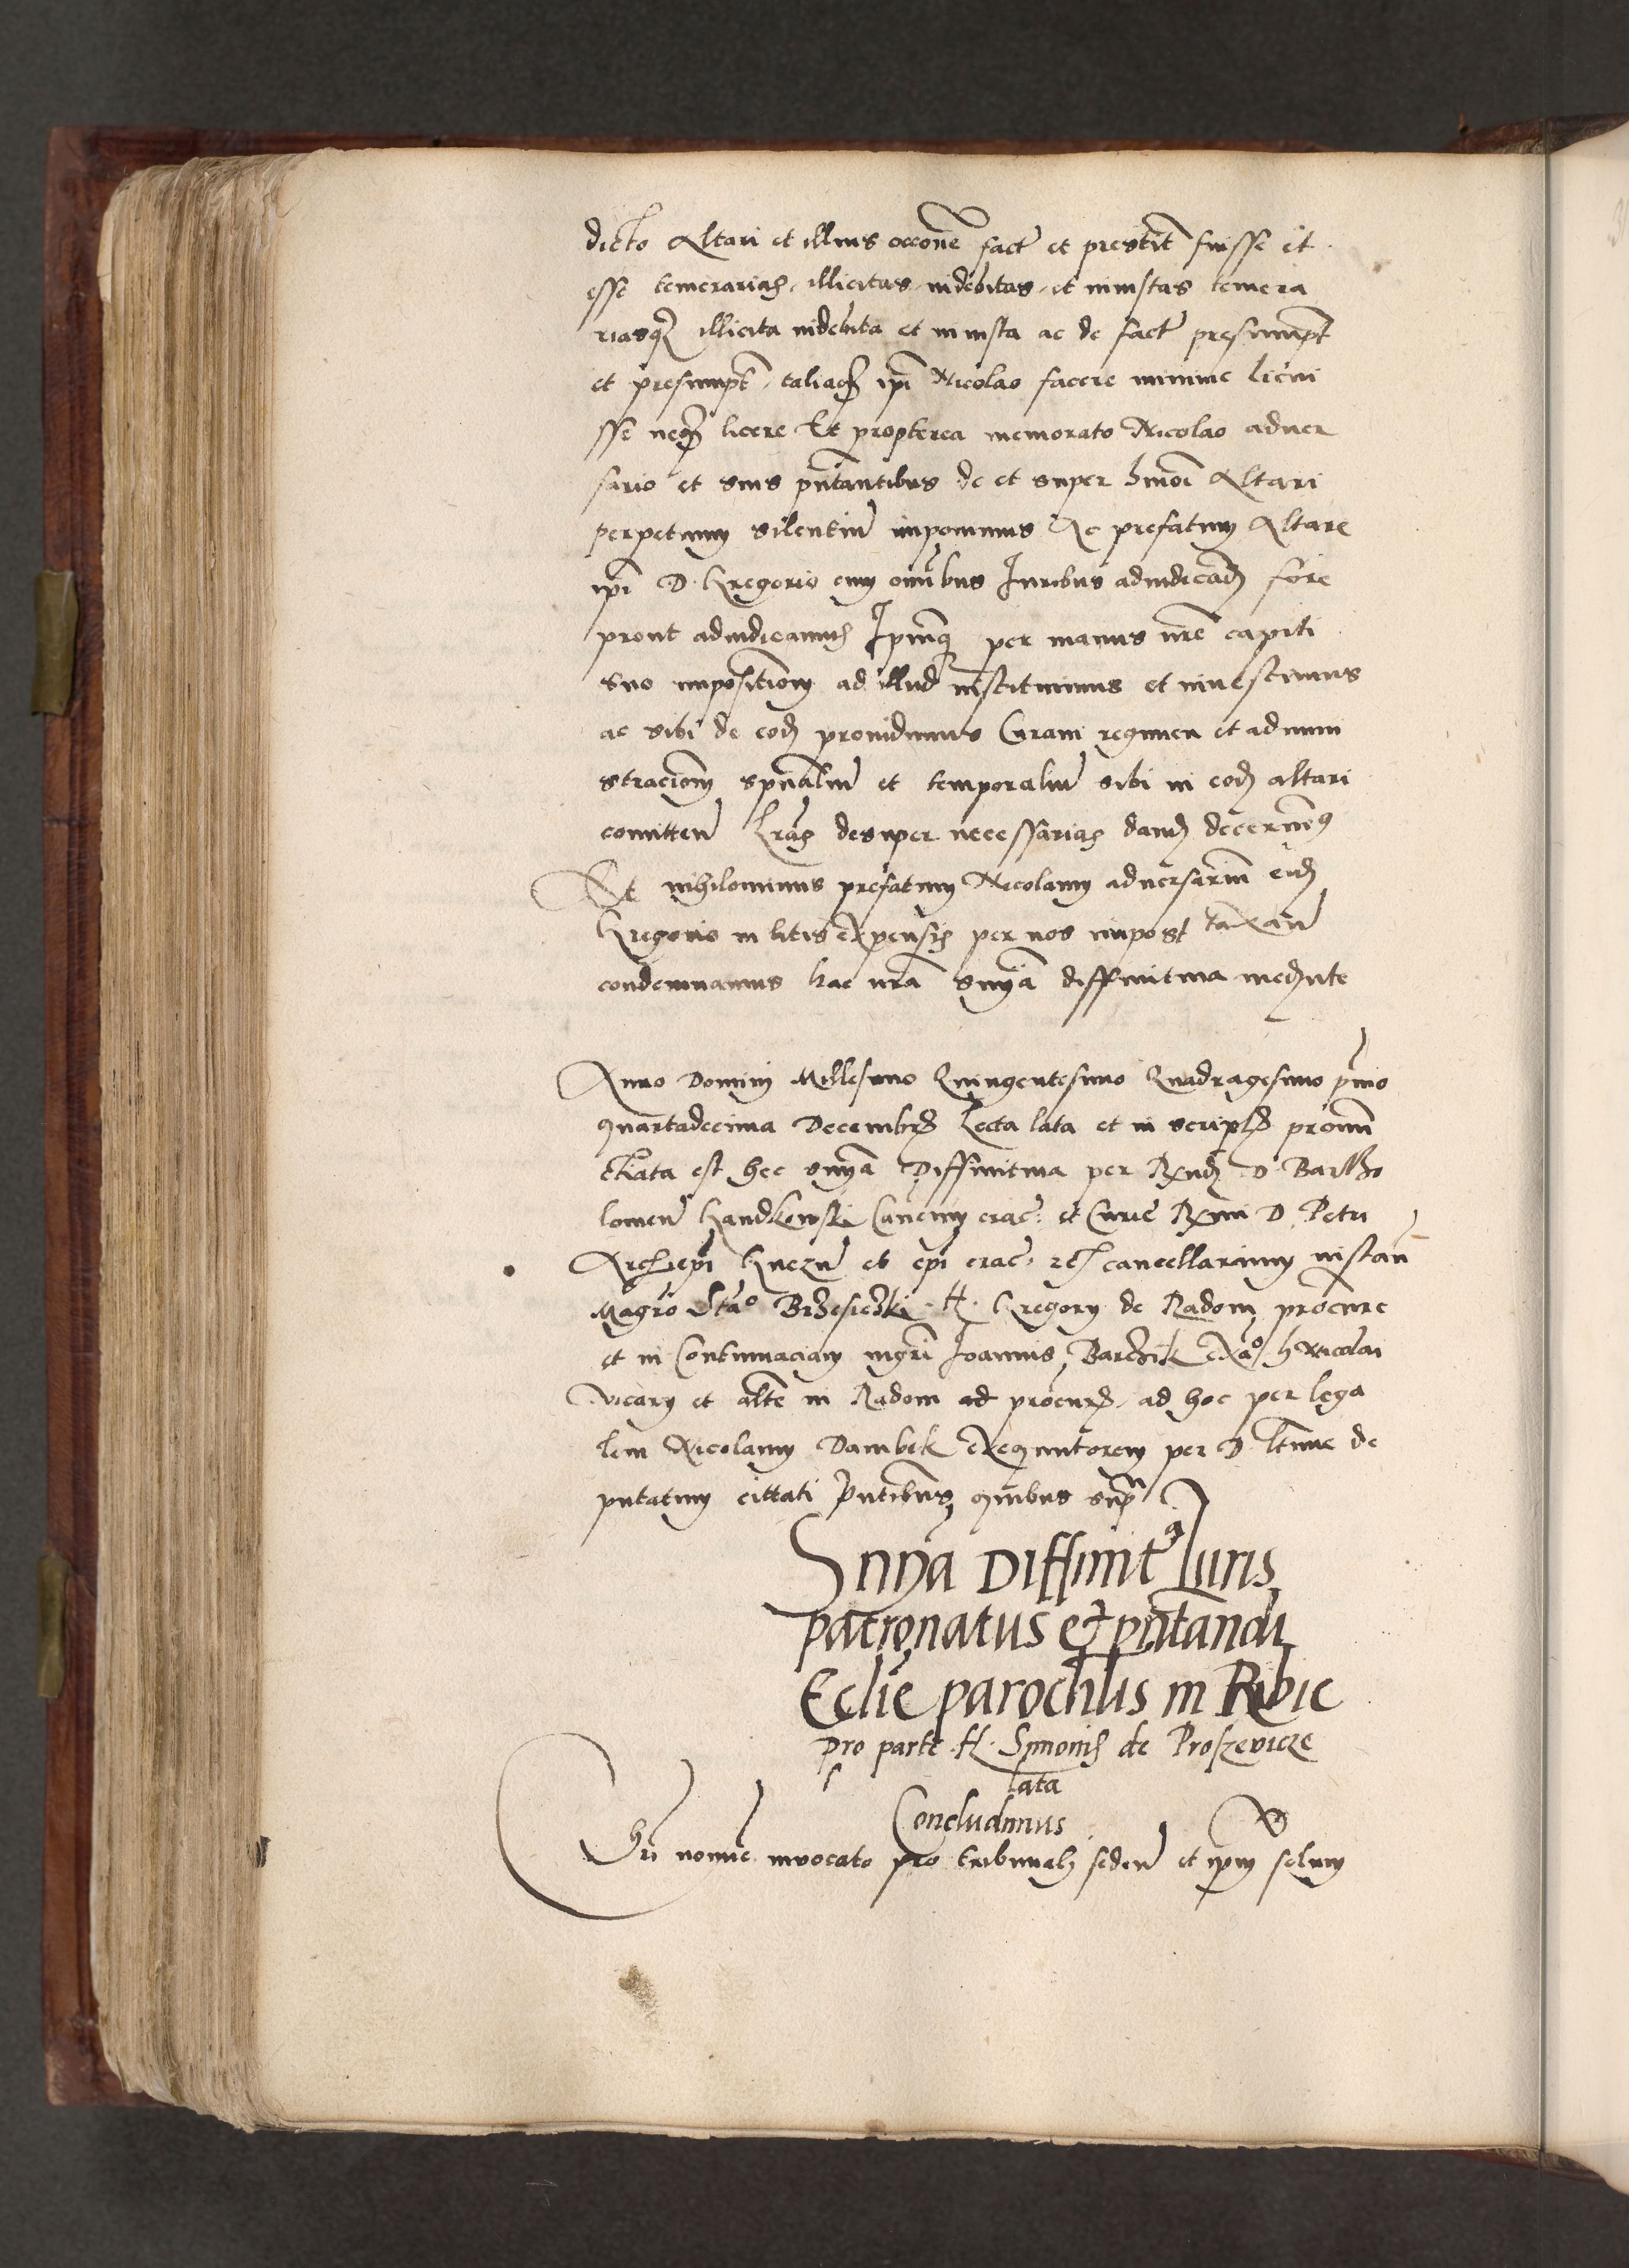 dicto Altari et illius occone fact et prestit fuisse et
esse temerarias, illicitas, indebitas, et iniustas temera
riasq illicita indebita et iniusta ac de fact presumpt
et presumpt, taliaq ipi Nicolao facere minime licui
sse neq licere Et propterea memorato Nicolao aduer
sario et suis pntantibus de et super hmoi Altari
perpetuum silentiu imponimus Ac prefatum Altare
ipi D. Gregorio cum omibus Iuribus adiudicand fore
prout adiudicamus Ipmq per manus nre capiti
suo impositiom ad illud instituimus et inuestimus
ac sibi de eod prouidimus Curam regimen et admini
straciom spualiu et temporaliu sibi in eod altari
comitten Lras desuper necessarias dand decernen
Et nihilominus prefatum Nicolaum aduersarium eid
Gregorio in litis expensis per nos impost taxan
condemnamus hac nra snya diffinitiua mediate
Anno Domini Millesimo Quingentesimo Quadragesimo pmo
quartadecima Decembris Lecta lata et in scriptis pronun
ctiata est hec snya Diffinitiua per Rxnd D Bartho
lomeu Gandkowski Canonicum crac: et Curie Rxmi D Petri
Archiepi Gnezn et epi crac: cancellarium instan
Magro Sta° Brzesiecki H. Gregory de Radom procure
et in Contumaciam mgri Ioannis Barczik Nicolai
vicary et alte in Radom ad procurs, ad hoc per lega
lem Nicolaum Dambek exequutorem per D. deD
putatum cittati pntibus quibus sup
Snya Diffinit Iuris
patronatus et pntandi
Eclie parochlis in Ribie
pro parte H. Simonis de Proszevicze
lata
Concludimus
Chri nomine inuocato pro tribunali seden et ipm solum